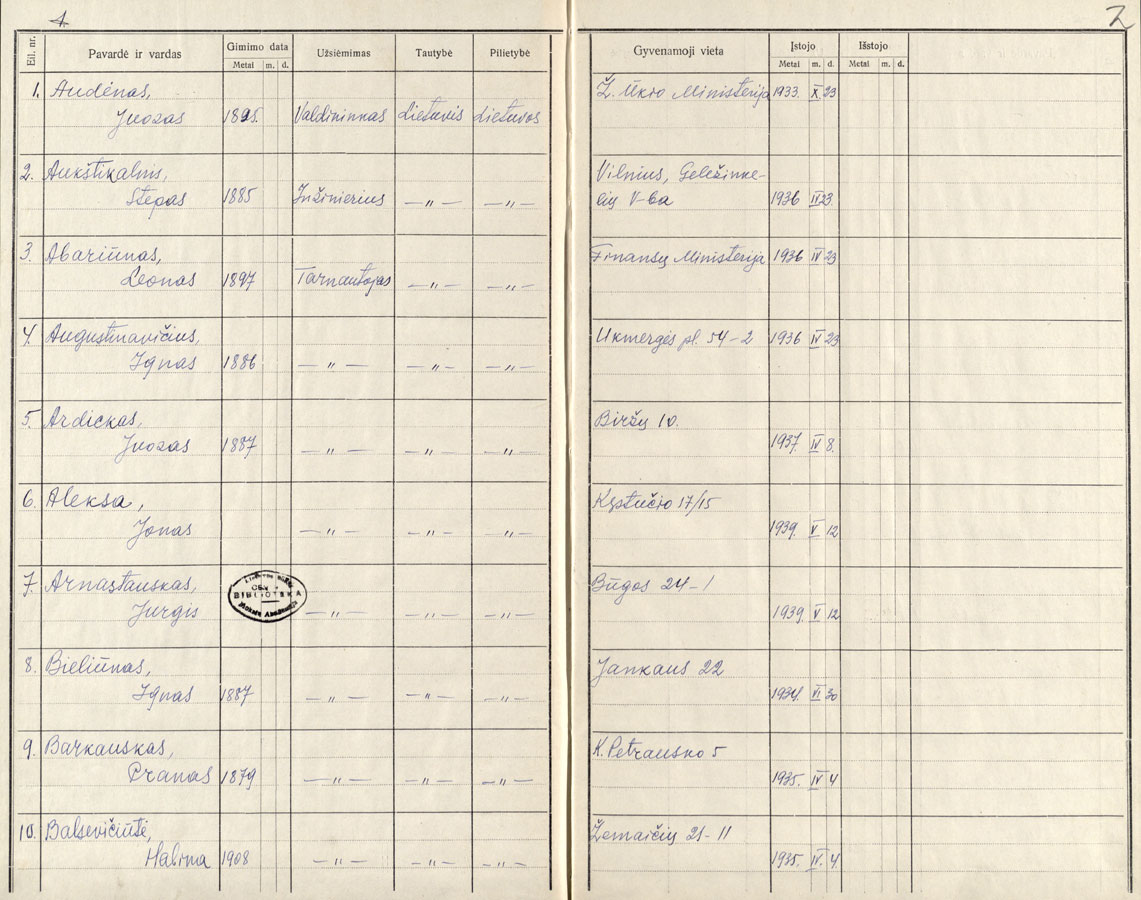 1
2
Eil. nr.
Pavardė ir vardas
Gimimo data
Metai m. d.
Užsiėmimas
Tautybė
Pilietybė
Gyvenamoji vieta
Įstojo
Metai m. d.
Išstojo
Metai m. d.
1. Audėnas, Ž. Ūkio Ministerija 1933. X 23
Juozas 1895. Valdininkas Lietuvis Lietuvos
2. Aukštikalnis, Vilnius, Geležinke-
Stepas 1885 Inžinierius —„— —„— lių V-ba 1936 IV 23.
3. Abariūnas, Finansų Ministerija 1936 IV 23
Leonas 1897 Tarnautojas —„— —„—
4. Augustinavičius, Ukmergės pl. 54-2 1936 IV 23
Ignas 1886 —„— —„— —„—
5. Ardickas, Biržų 10.
Juozas 1887 —„— —„— —„— 1937. IV 8.
6. Aleksa, Kęstučio 17/15
Jonas —„— —„— —„— 1939. V 12
7. Arnastauskas, Būgos 24-1
BIBLIOTEKA
Jurgis —„— —„— —„— 1939. V 12
8. Bieliūnas, Jankaus 22
Ignas 1887 —„— —„— —„— 1934. VI 30
9. Barkauskas, K. Petrausko 5
Pranas 1879 —„— —„— —„— 1935. IV 4
10. Balsevičiūtė, Žemaičių 21-11
Halina 1908 —„— —„— —„— 1935. IV. 4.